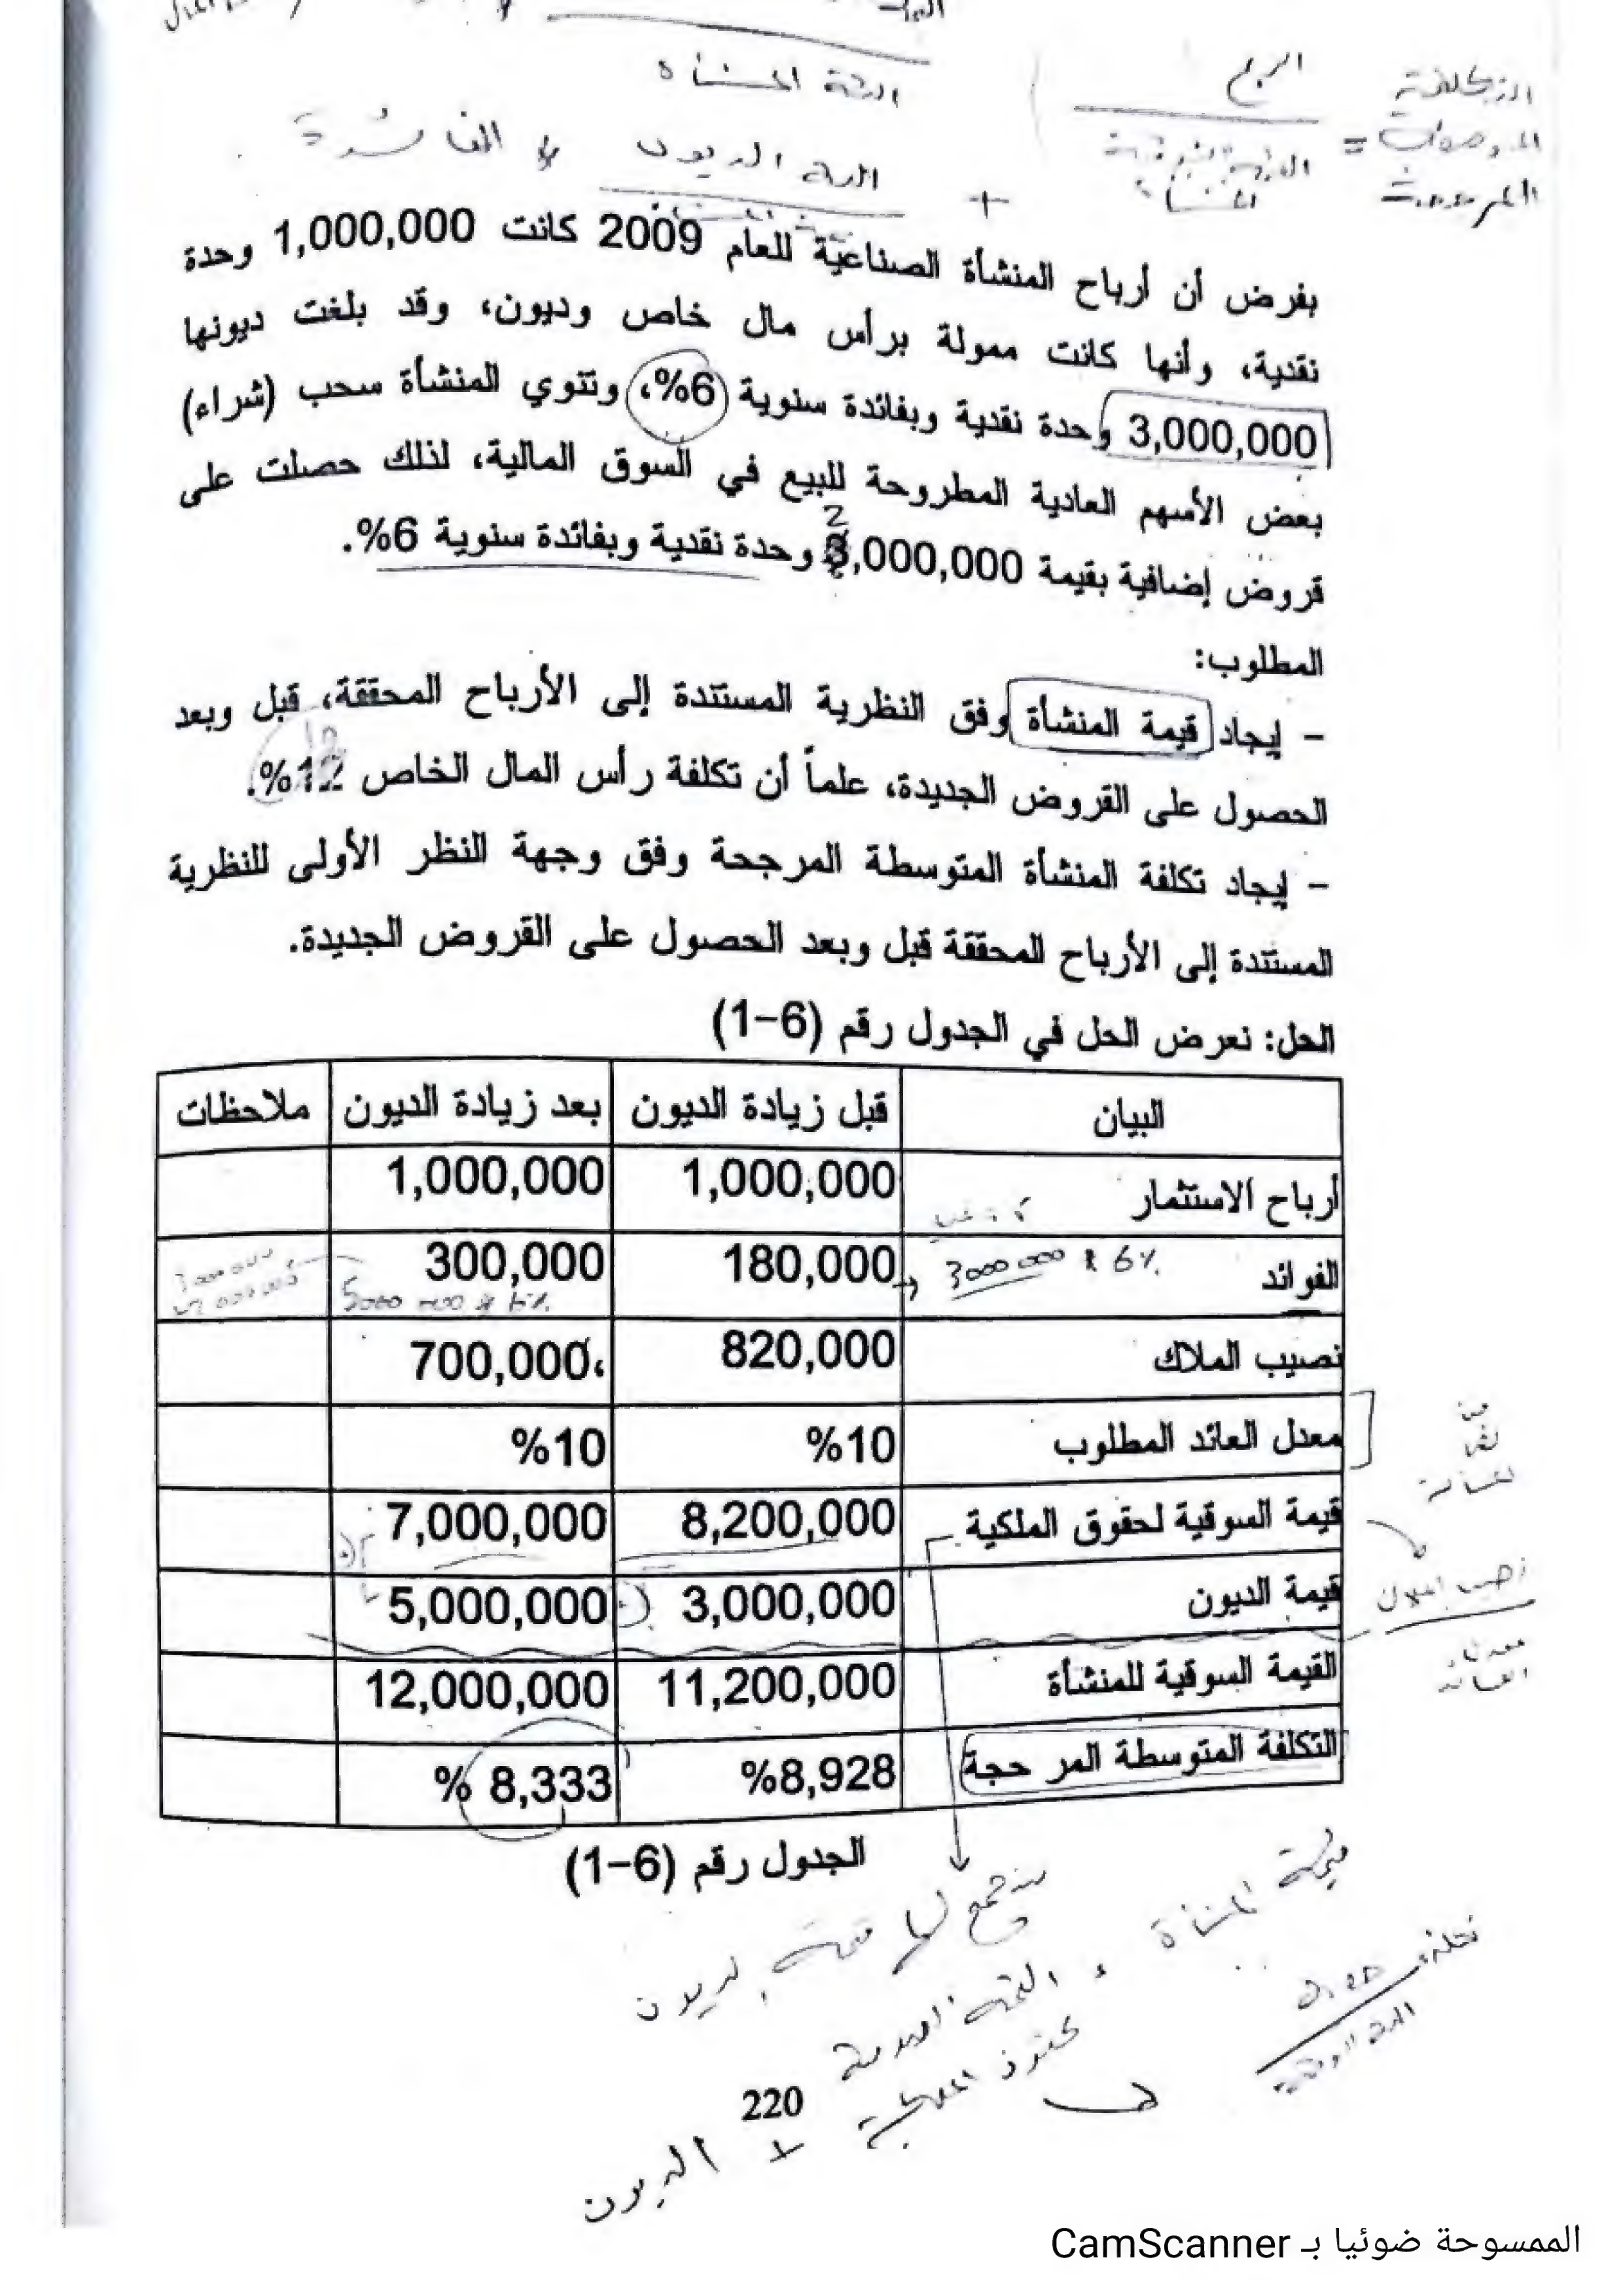 الربح
قيمة المنشأة
+
بفرض أن أرباح المنشأة الصناعية للعام 2009 كانت 1,000,000 وحدة
نقدية، وأنها كانت ممولة برأس مال خاص وديون، وقد بلغت ديونها
3,000,000 وحدة نقدية وبفائدة سنوية 6%، وتنوي المنشأة سحب (شراء)
بعض الأسهم العادية المطروحة للبيع في السوق المالية، لذلك حصلت على
2
قروض إضافية بقيمة 3,000,000 وحدة نقدية وبفائدة سنوية 6%.
المطلوب:
- إيجاد قيمة المنشأة وفق النظرية المستندة إلى الأرباح المحققة، قبل وبعد
الحصول على القروض الجديدة، علماً أن تكلفة رأس المال الخاص 12%.
- إيجاد تكلفة المنشأة المتوسطة المرجحة وفق وجهة النظر الأولى للنظرية
المستندة إلى الأرباح المحققة قبل وبعد الحصول على القروض الجديدة.
الحل: نعرض الحل في الجدول رقم (6-1)
البيان قبل زيادة الديون بعد زيادة الديون ملاحظات
أرباح الاستثمار 1,000,000 1,000,000
الفوائد 3000000 * 6% 180,000 300,000
5000 000 * 6%
نصيب الملاك 820,000 700,000
معدل العائد المطلوب %10 %10
قيمة السوقية لحقوق الملكية 8,200,000 7,000,000
قيمة الديون 3,000,000 5,000,000
القيمة السوقية للمنشأة 11,200,000 12,000,000
التكلفة المتوسطة المر حجة %8,928 % 8,333
الجدول رقم (6-1)
قيمة المنشأة
حقوق الملكية + الديون
220
الممسوحة ضوئيا بـ CamScanner